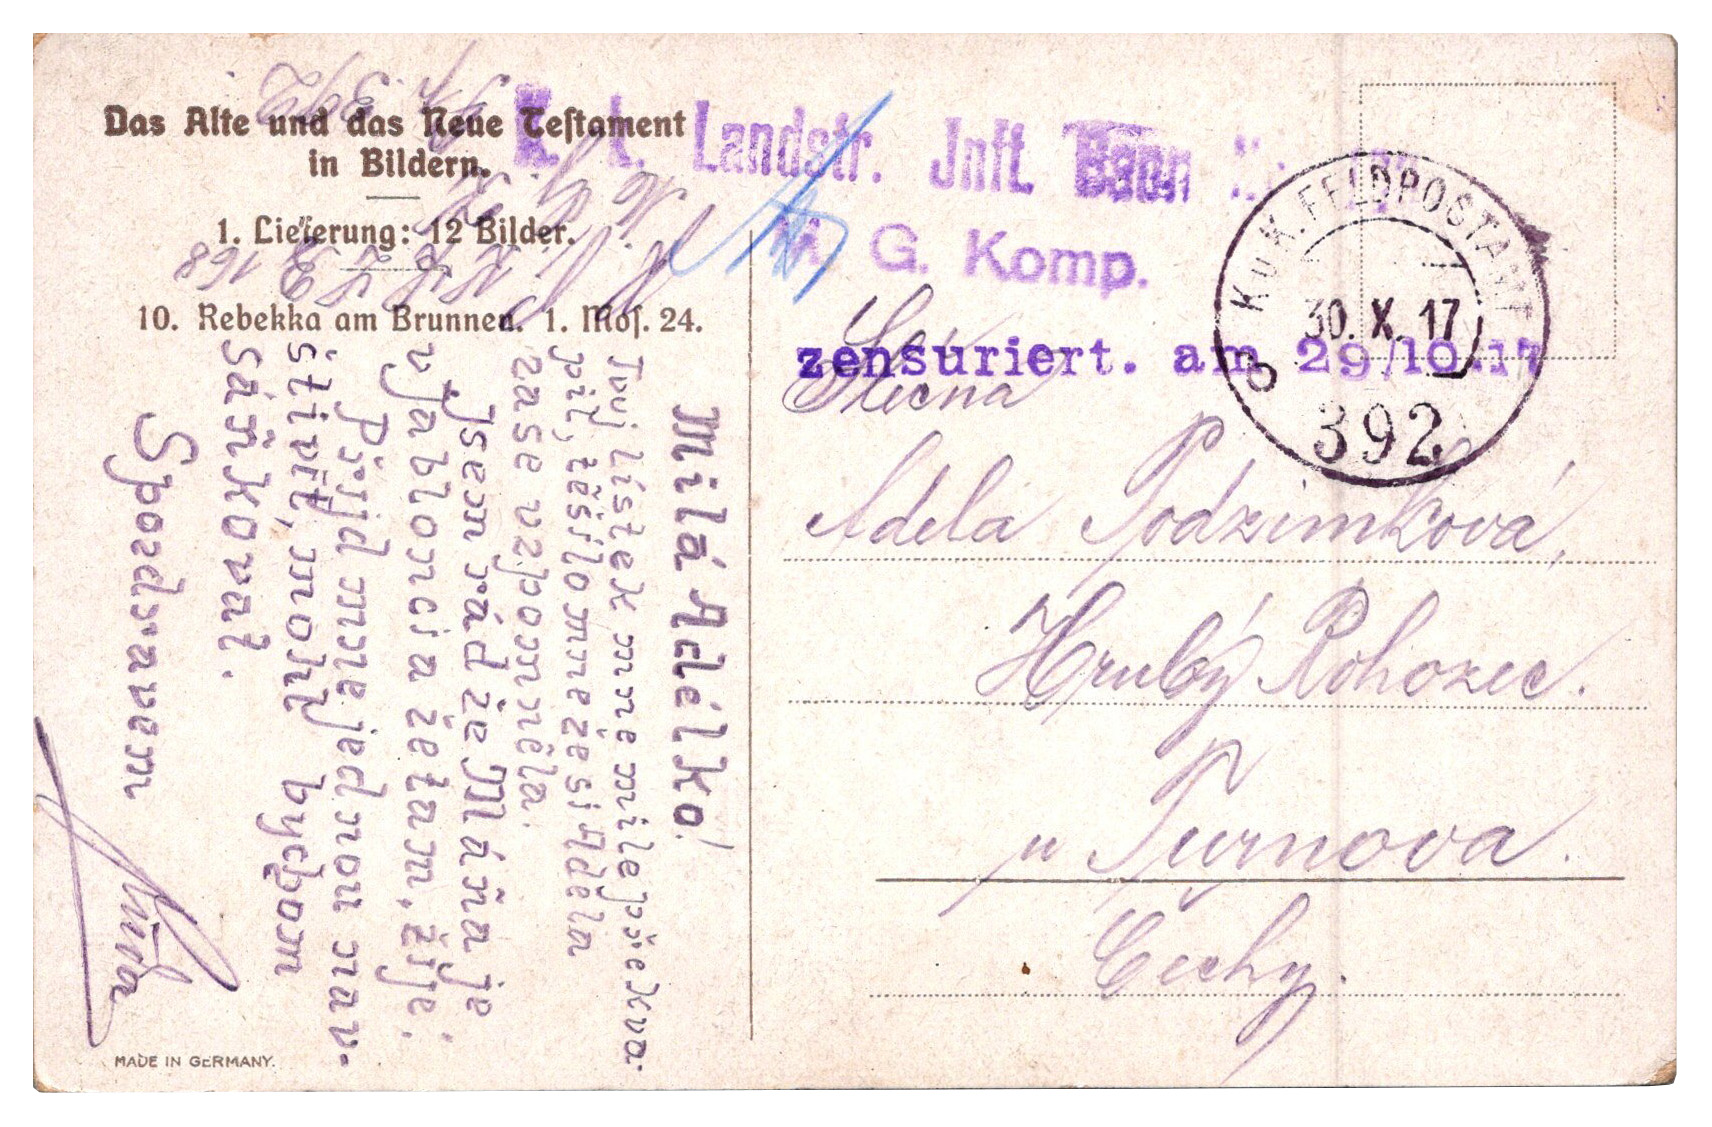 Das Alte und das Neue Testament
in Bildern.
1. Lieferung: 12 Bilder.
10. Rebekka am Brunnen. 1. Mos. 24.
K. k. Landstr. Inft. Baon
M. G. Komp.
K.u.K. FELDPOSTAMT
30. X. 17
B
392
zensuriert. am 29/10.17
Slečna
Adela Podzimková,
Hrubý Rohozec.
u Turnova.
Čechy.
Milá Adélko!
Tvůj lístek mně mile překva-
pil, těšílo mne že si Adela
zase vzpomněla.
Jsem rád že Máňa je
v Jablonci a že tam, žije.
Přijď mně jednou nav-
štívit, mohl bychom
sáňkovat.
S pozdravem
168
392
MADE IN GERMANY.